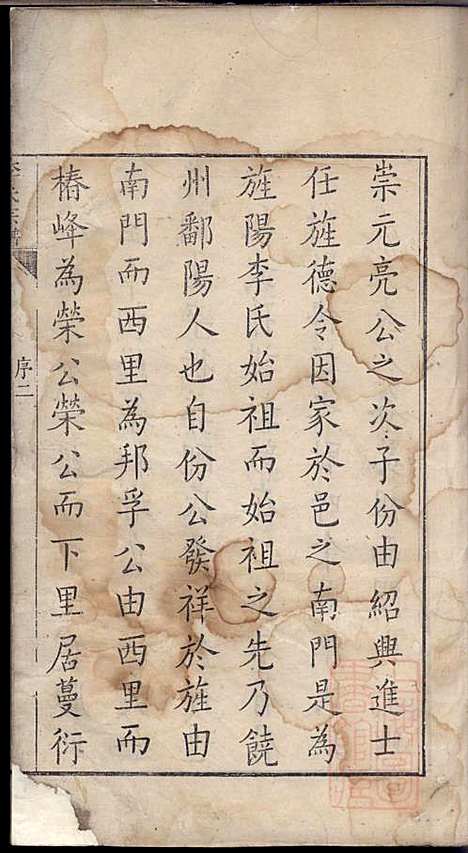 崇元亮公之次子份由紹興進士
任旌德令因家於邑之南門是為
旌陽李氏始祖而始祖之先乃饒
州鄱陽人也自份公發祥於旌由
南門而西里為邦孚公由西里而
椿峰為榮公榮公而下里居蔓衍
序二